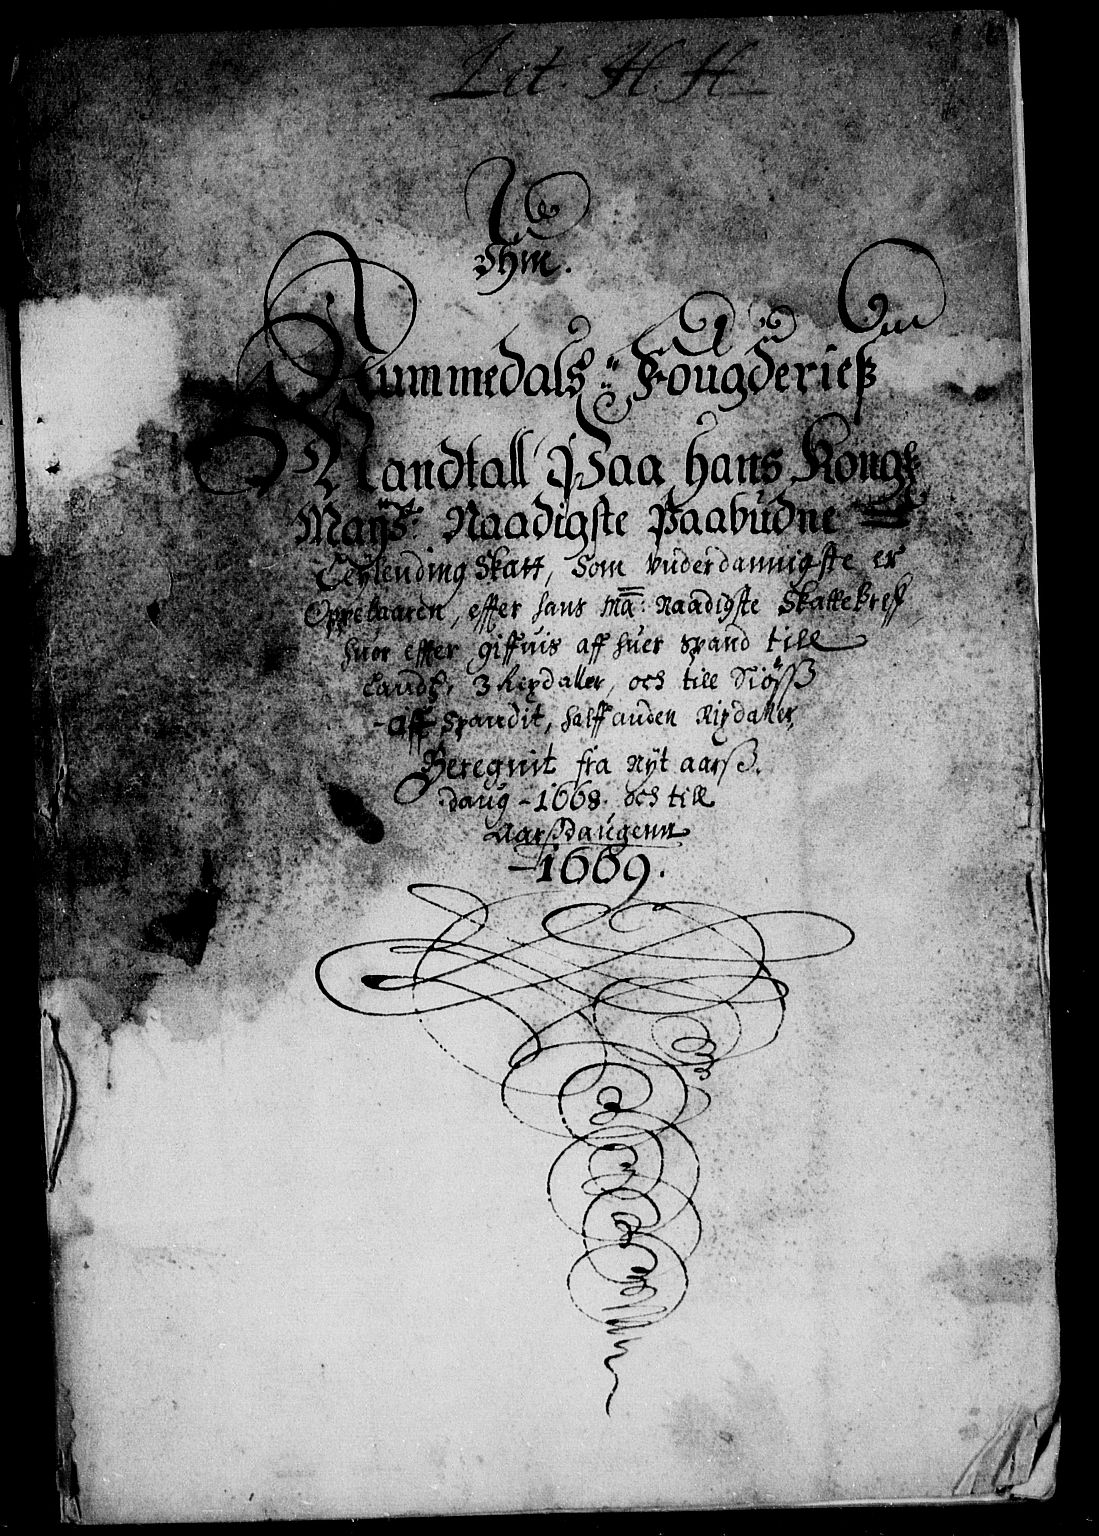 Lit. H. H.
Jhm.
Nummedals Fougderieß
Mandtall Paa hans Kongl:
Mayst: Naadigste Paabudne
Leylending Skatt, Som underdannigste er
Oppebaaren, effter hans Ma: Naadigste Skattebreff
huor effter giffuis aff huer spand till
Landz, 3 Rixdaller, och till Siöß
aff Spandit, halffanden Rixdaller,
Beregnit fra Nyt aarß
daug 1668. och till
Aarßdaugenn
1669.